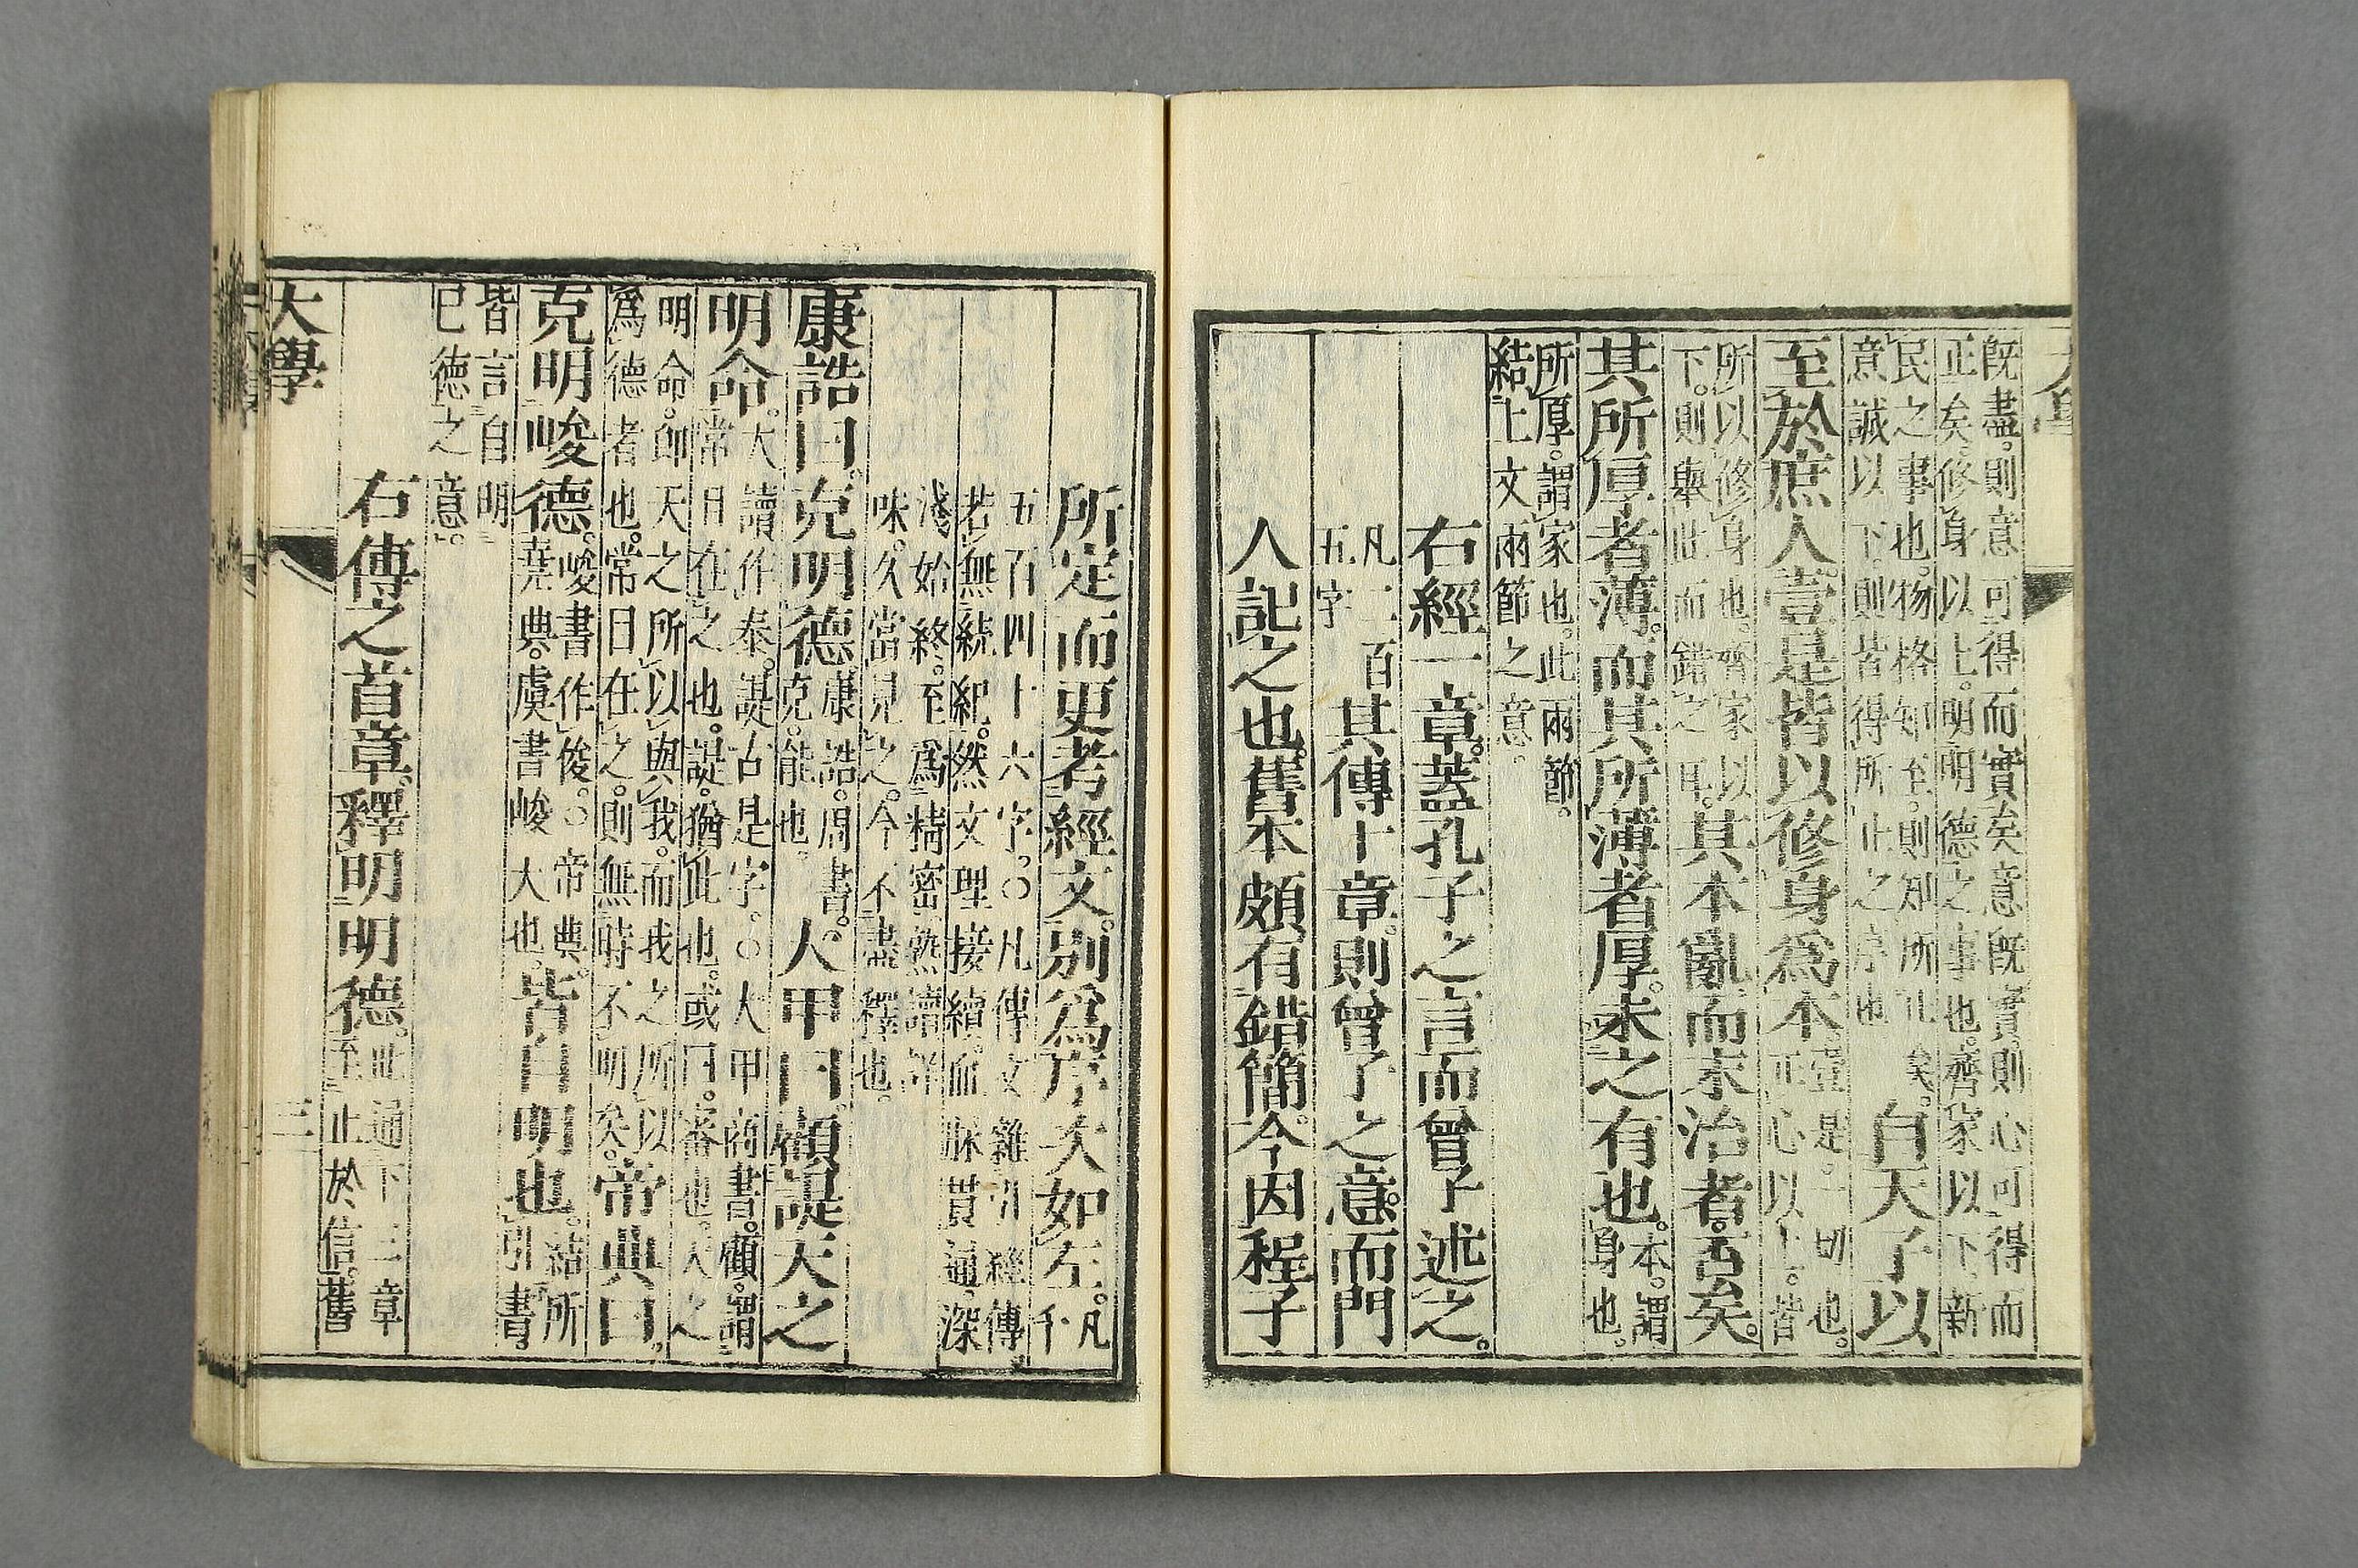 既盡。則意可得而實矣意既實則心可得而
正矣。修身以上。明明德之事也。齊家以下。新
民之事也。物格知至。則知所止矣。
意誠以下。則皆得所止之序也
自天子以
至於庶人。壹是皆以修身爲本。
壹是。一切也。
正心以上。皆
所以修身也。齊家以
下。則舉此而錯之耳。
其本亂而末治者。否矣。
其所厚者薄。而其所薄者厚。未之有也。
本。謂
身也。
所厚。謂家也。此兩節。
結上文兩節之意。
右經一章。蓋孔子之言而曾子述之。
凡二百
五字
其傳十章。則曾子之意。而門
人記之也。舊本頗有錯簡。今因程子
所定而更考經文。別爲序次如左。
凡
千
五百四十六字。○凡傳文雜引經傳。
若無統紀。然文理接續。而脉貫通。深
淺始終。至爲精密。熟讀詳
味。久當見之。今不盡釋也。
康誥曰。克明德。
康誥。周書。
克。能也。
大甲曰。顧諟天之
明命。
大讀作泰。諟古是字。○大甲商書。顧。謂
常目在之也。諟。猶此也。或曰。審也。天之
明命。卽天之所以與我。而我之所以
爲德者也。常目在之。則無時不明矣。
帝典曰。
克明峻德。
峻書作俊。○帝典。
堯典。虞書峻大也。
皆自明也。
結所
引書。
皆言自明
己德之意。
右傳之首章。釋明明德。
此通下三章
至止於信。舊
大學
三